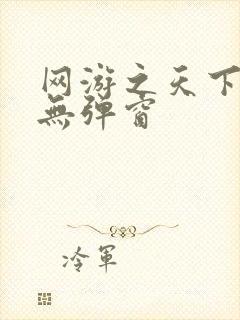 网游之天下
無弹窗
冷軍